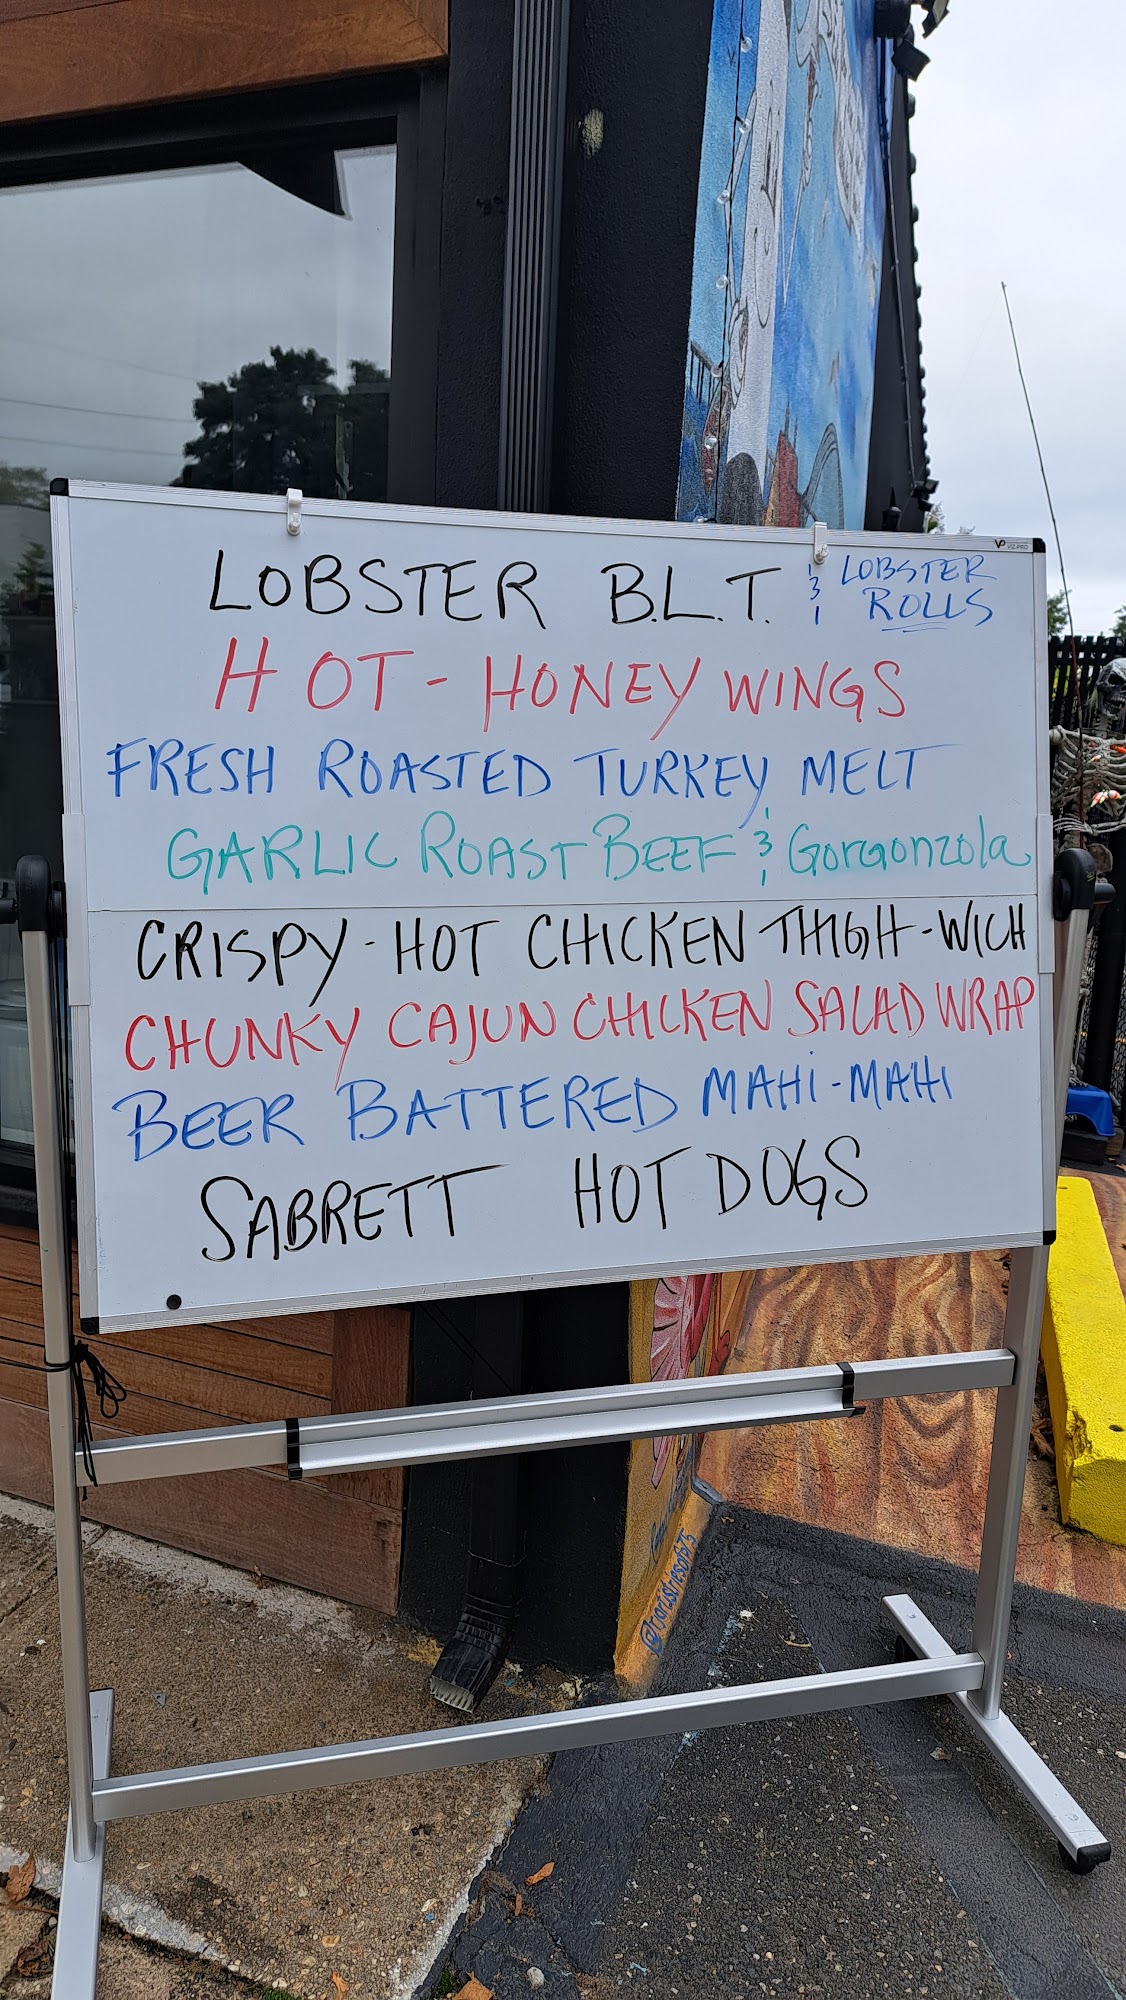 LOBSTER B.L.T. & LOBSTER ROLLS
HOT-HONEY WINGS
FRESH ROASTED TURKEY MELT
GARLIC ROAST BEEF & Gorgonzola
CRISPY-HOT CHICKEN THIGH-WICH
CHUNKY CAJUN CHICKEN SALAD WRAP
BEER BATTERED MAHI-MAHI
SABRETT HOT DOGS
VIZ-PRO